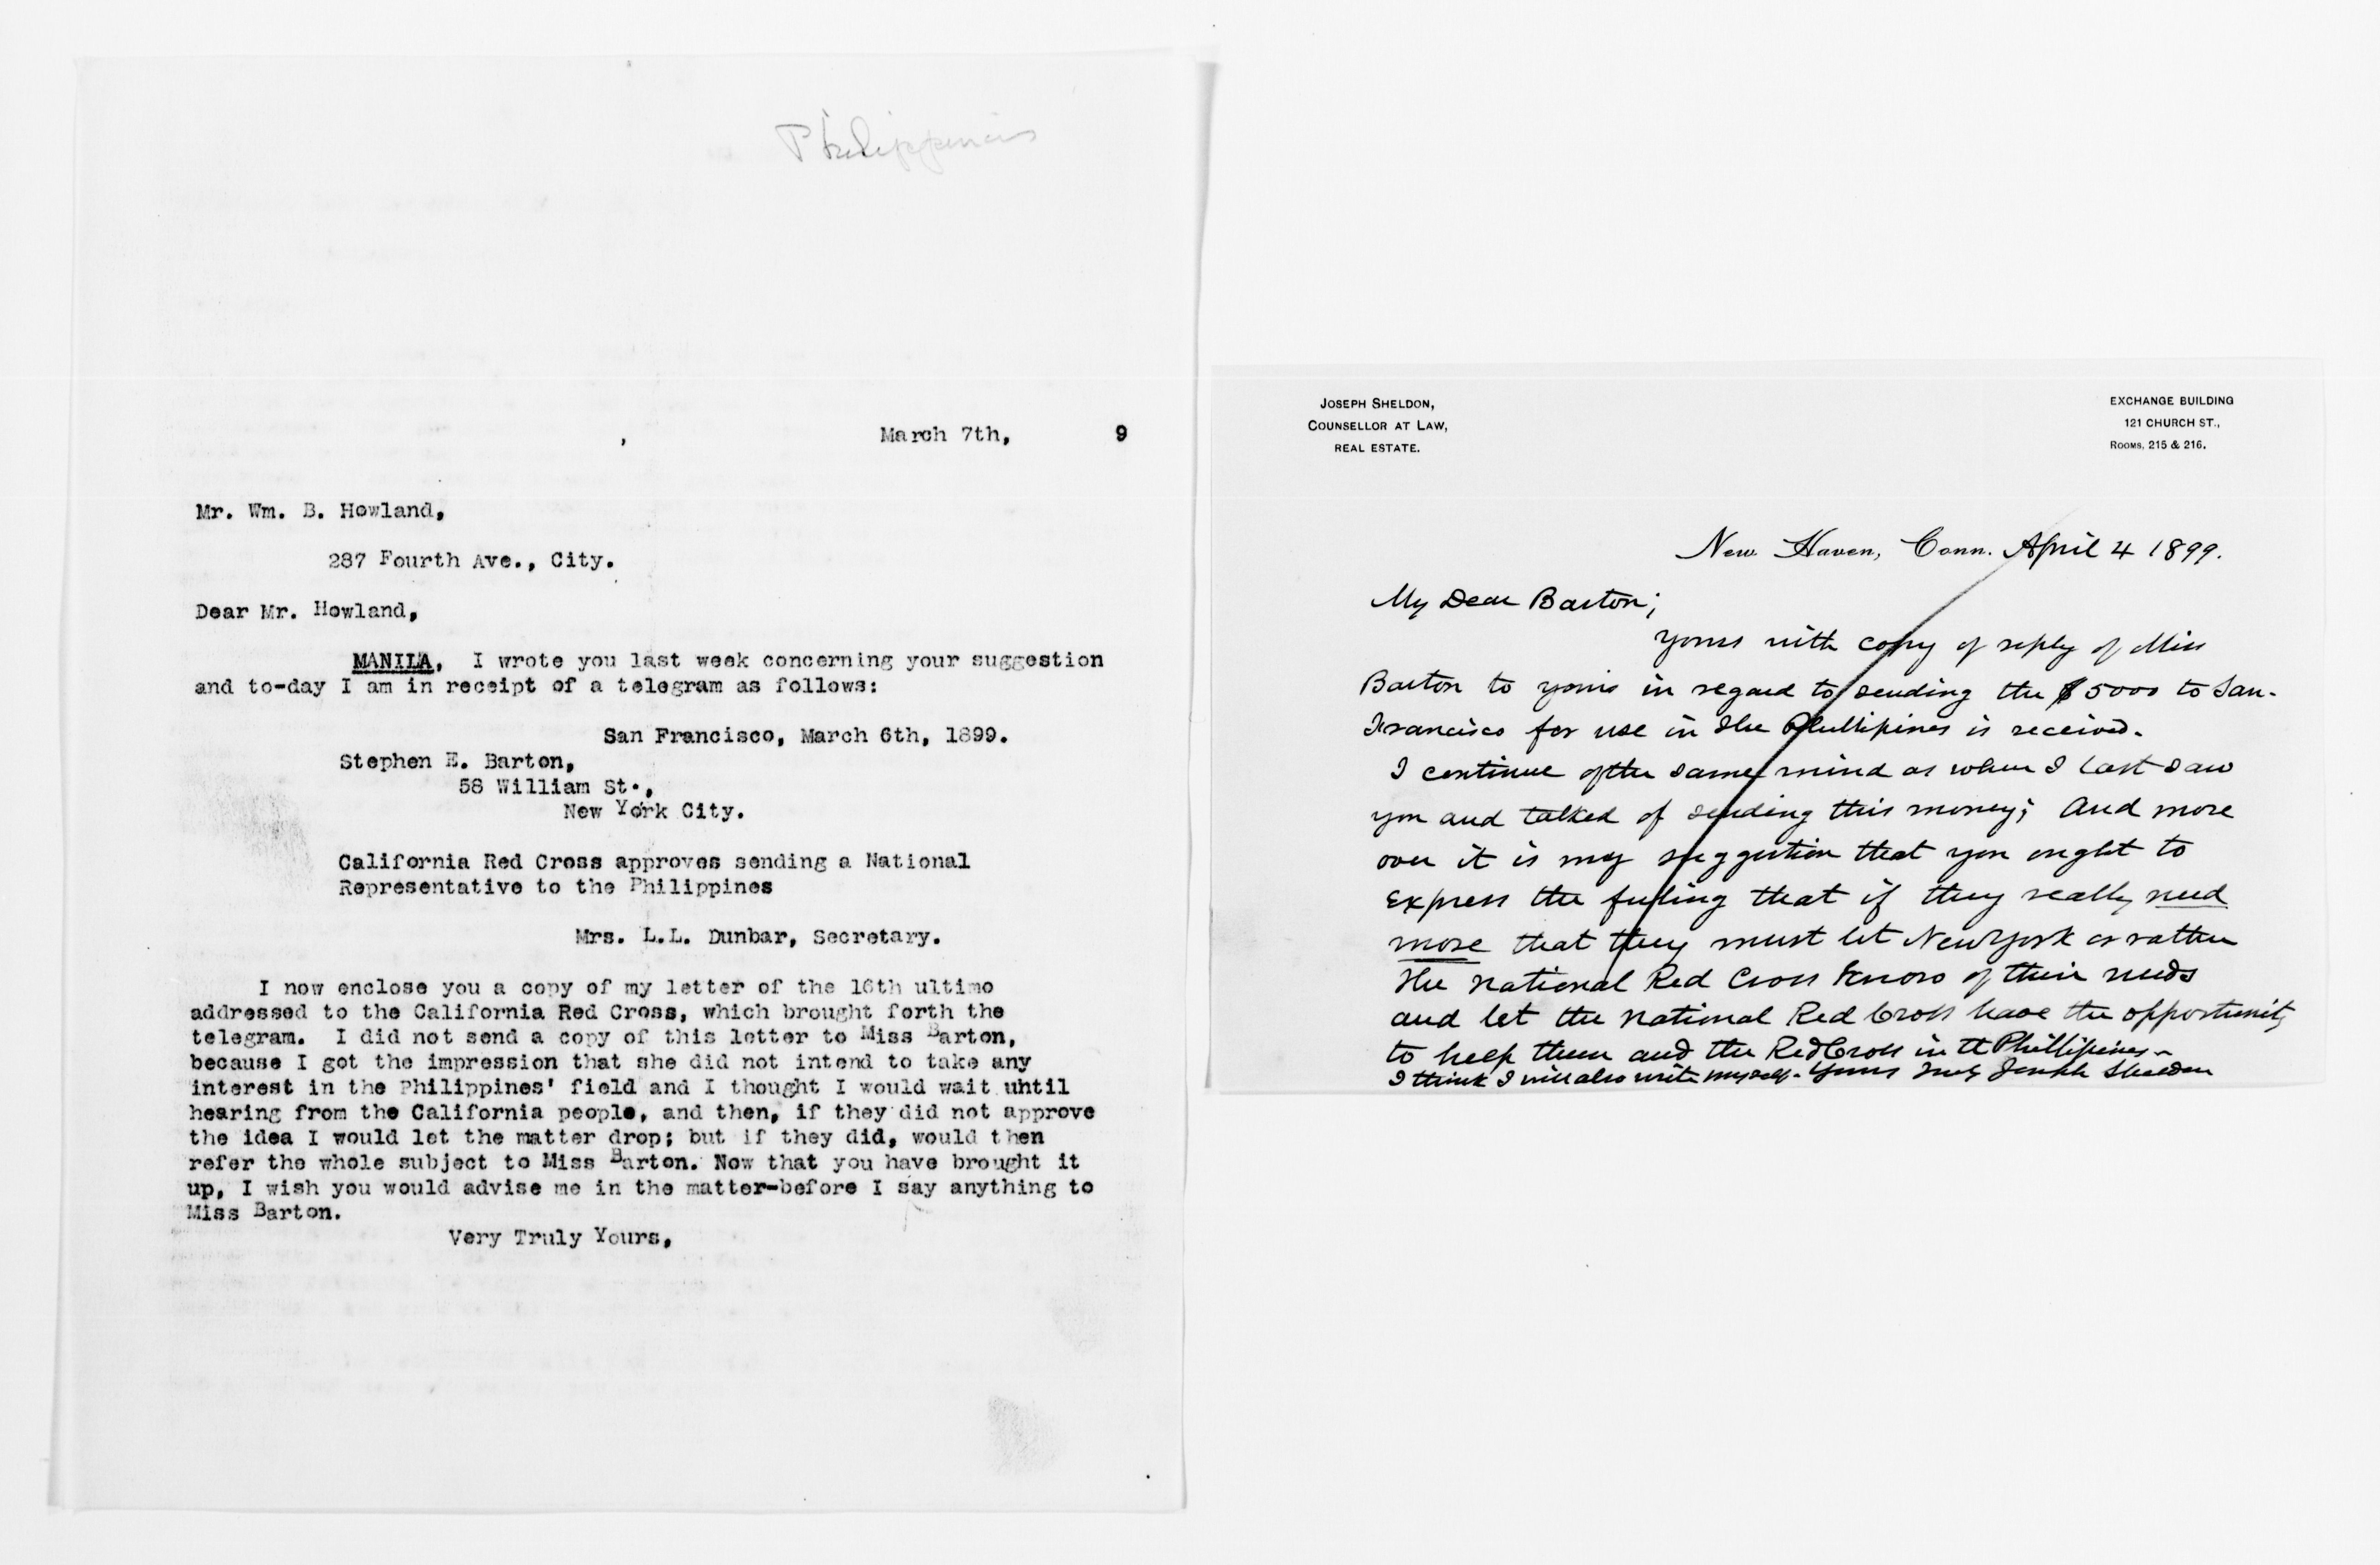 Philippines
March 7th, 9
Mr. Wm. B. Howland,
287 Fourth Ave., City.
Dear Mr. Howland,
MANILA, I wrote you last week concerning your suggestion
and to-day I am in receipt of a telegram as follows:
San Francisco, March 6th, 1899.
Stephen E. Barton,
58 William St.,
New York City.
California Red Cross approves sending a National
Representative to the Philippines
Mrs. L.L. Dunbar, Secretary.
I now enclose you a copy of my letter of the 16th ultimo
addressed to the California Red Cross, which brought forth the
telegram. I did not send a copy of this letter to Miss Barton,
because I got the impression that she did not intend to take any
interest in the Philippines' field and I thought I would wait uhtil
hearing from the California people, and then, if they did not approve
the idea I would let the matter drop; but if they did, would then
refer the whole subject to Miss Barton. Now that you have brought it
up, I wish you would advise me in the matter-before I say anything to
Miss Barton.
Very Truly Yours,
JOSEPH SHELDON,
COUNSELLOR AT LAW,
REAL ESTATE.
EXCHANGE BUILDING
121 CHURCH ST.,
ROOMS, 215 & 216.
New Haven, Conn. April 4 1899.
My Dear Barton;
Yours with copy of reply of Miss
Barton to yours in regard to sending the $5000 to San-
Francisco for use in the Phillipines is received.
I continue of the same mind as when I last saw
you and talked of sending this money; And more
over it is my suggestion that you ought to
express the feeling that if they really need
more that they must let New York or rather
the National Red Cross know of their needs
and let the National Red Cross have the opportunity
to help them and the Red Cross in the Phillipines-
I think I will also write myself- Yours Truly Joseph Sheldon